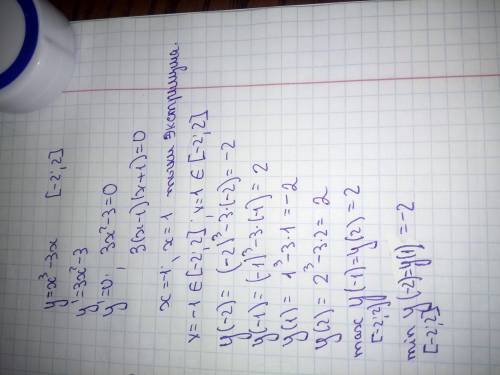 y=x³-3x [-2;2]
y'=3x²-3
y'=0; 3x²-3=0
3(x-1)(x+1)=0
x=-1, x=1 точки экстримума.
x=-1 ∈ [-2;2]; x=1 ∈ [-2;2]
y(-2) = (-2)³-3·(-2) = -2
y(-1) = (-1)³-3·(-1) = 2
y(1) = 1³-3·1 = -2
y(2) = 2³-3·2 = 2
max y(-1)=y(2) = 2
[-2;2]
min y(-2)=y(1) = -2
[-2;2]